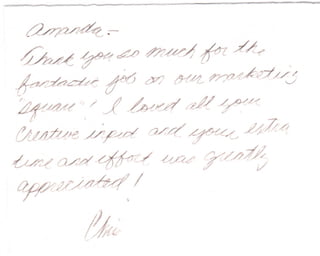 Amanda -
Thank you so much for the
fantastic job on our marketing
"square"! I loved all your
creative input and your extra
time and effort was greatly
appreciated!